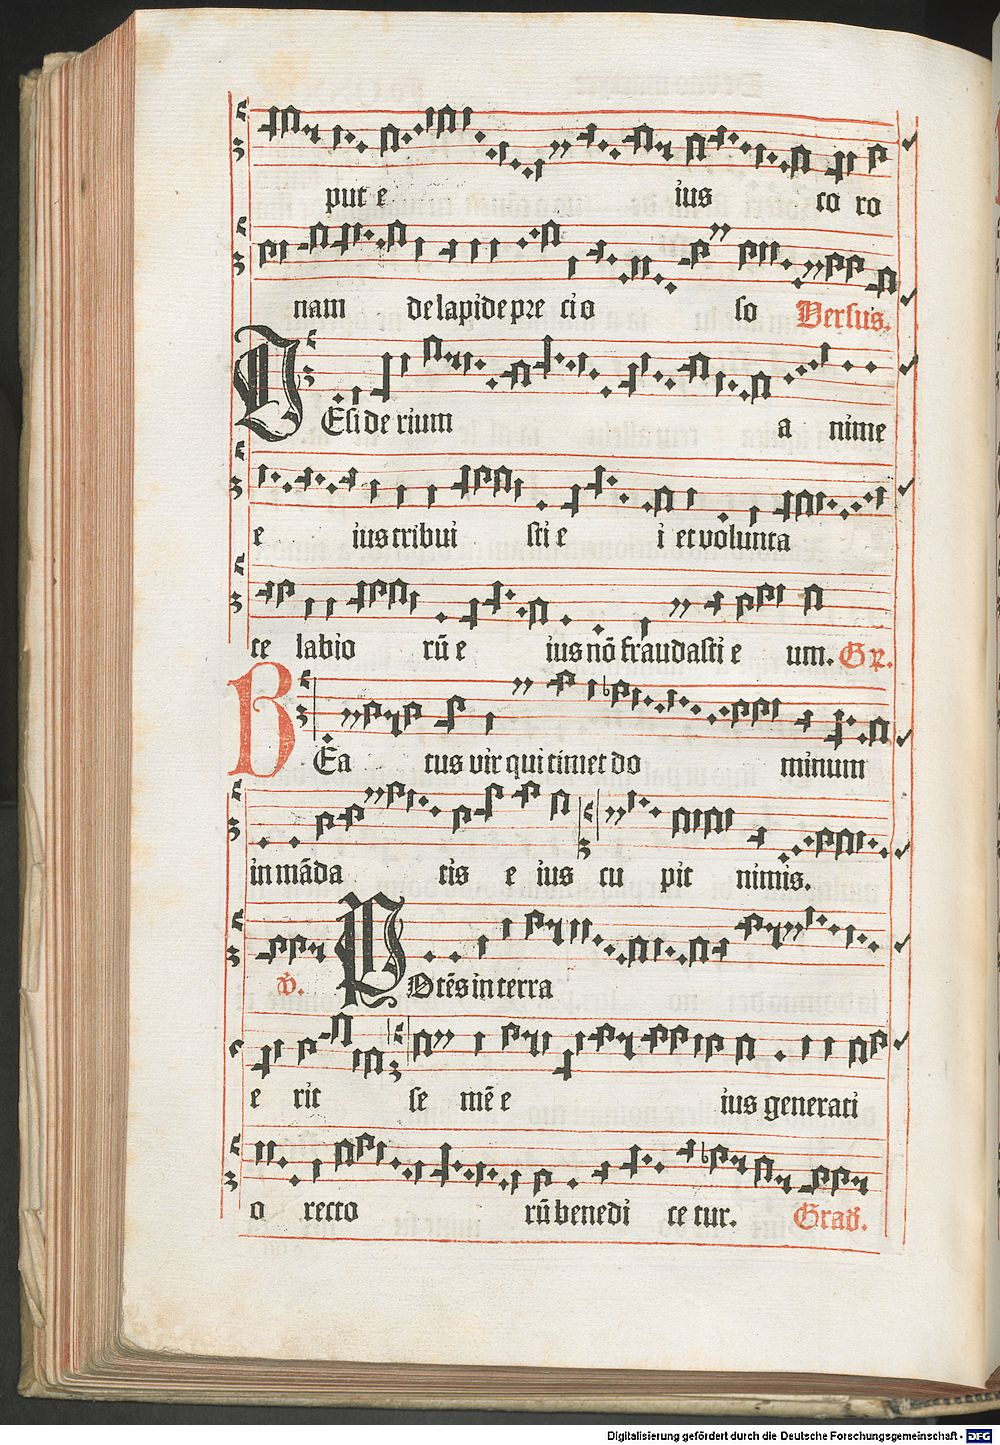 put e ius co ro
nam de lapide pre cio so Versus.
DEside rium a nime
e ius tribui sti e i et volunta
te labio rū e ius nō fraudasti e um. Gr.
BEa tus vir qui timet do minum
in māda tis e ius cu pit nimis.
℣. POtēs in terra
e rit se mē e ius generati
o recto rū benedi ce tur. Grad.
Digitalisierung gefördert durch die Deutsche Forschungsgemeinschaft - DFG